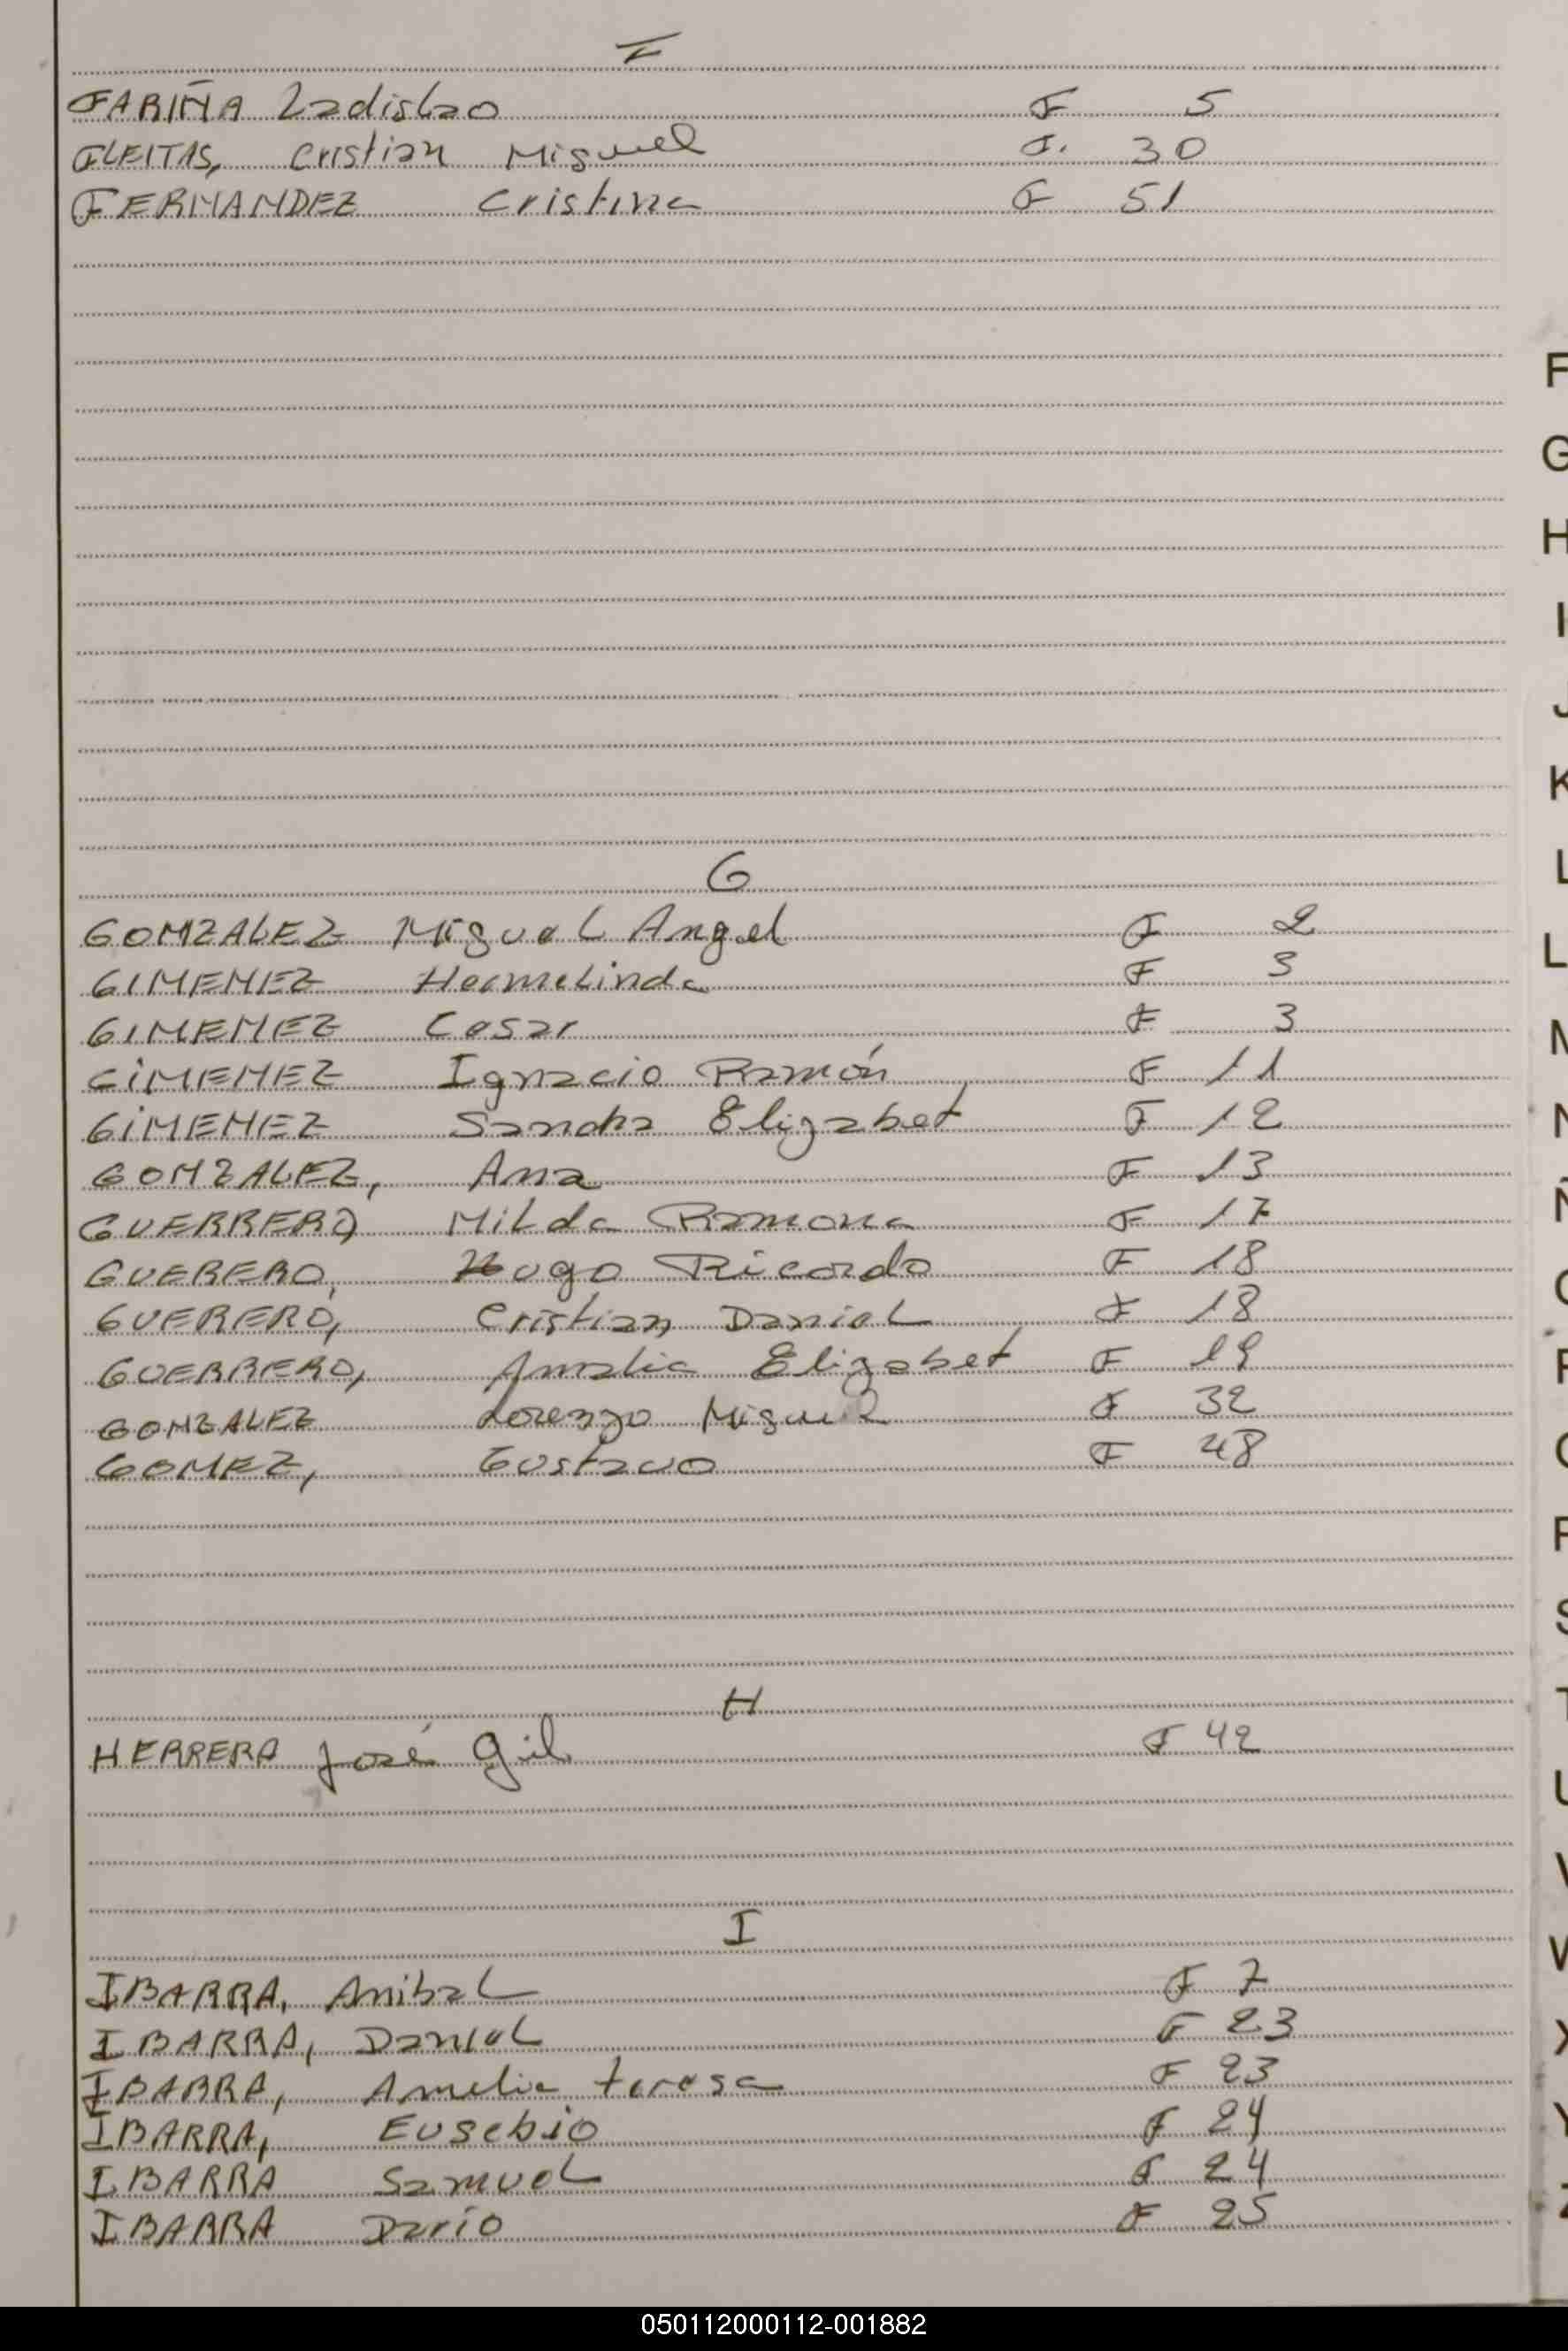 F
FARIÑA Ladislao F 5
FLEITAS, Cristian Miguel F. 30
FERNANDEZ Cristina F 51
G
GONZALEZ Miguel Angel F 2
GIMENEZ Hermelinda F 3
GIMENEZ Cesar F 3
GIMENEZ Ignacio Ramón F 11
GIMENEZ Sandra Elizabet F 12
GONZALEZ, Ana F 13
GUERRERO, Milda Ramona F 17
GUERERO, Hugo Ricardo F 18
GUERERO, Cristian Daniel F 18
GUERRERO, Amalia Elizabet F 19
GONZALEZ Lorenzo Miguel F 32
GOMEZ, Gustavo F 48
H
HERRERA José Gil F 42
I
IBARRA, Anibal F 7
IBARRA, Daniel F 23
IBARRA, Amelia teresa F 23
IBARRA, Eusebio F 24
IBARRA Samuel F 24
IBARRA Darío F 25
F
G
H
I
J
K
L
L
M
N
Ñ
O
P
Q
R
S
T
U
V
W
X
Y
Z
050112000112-001882